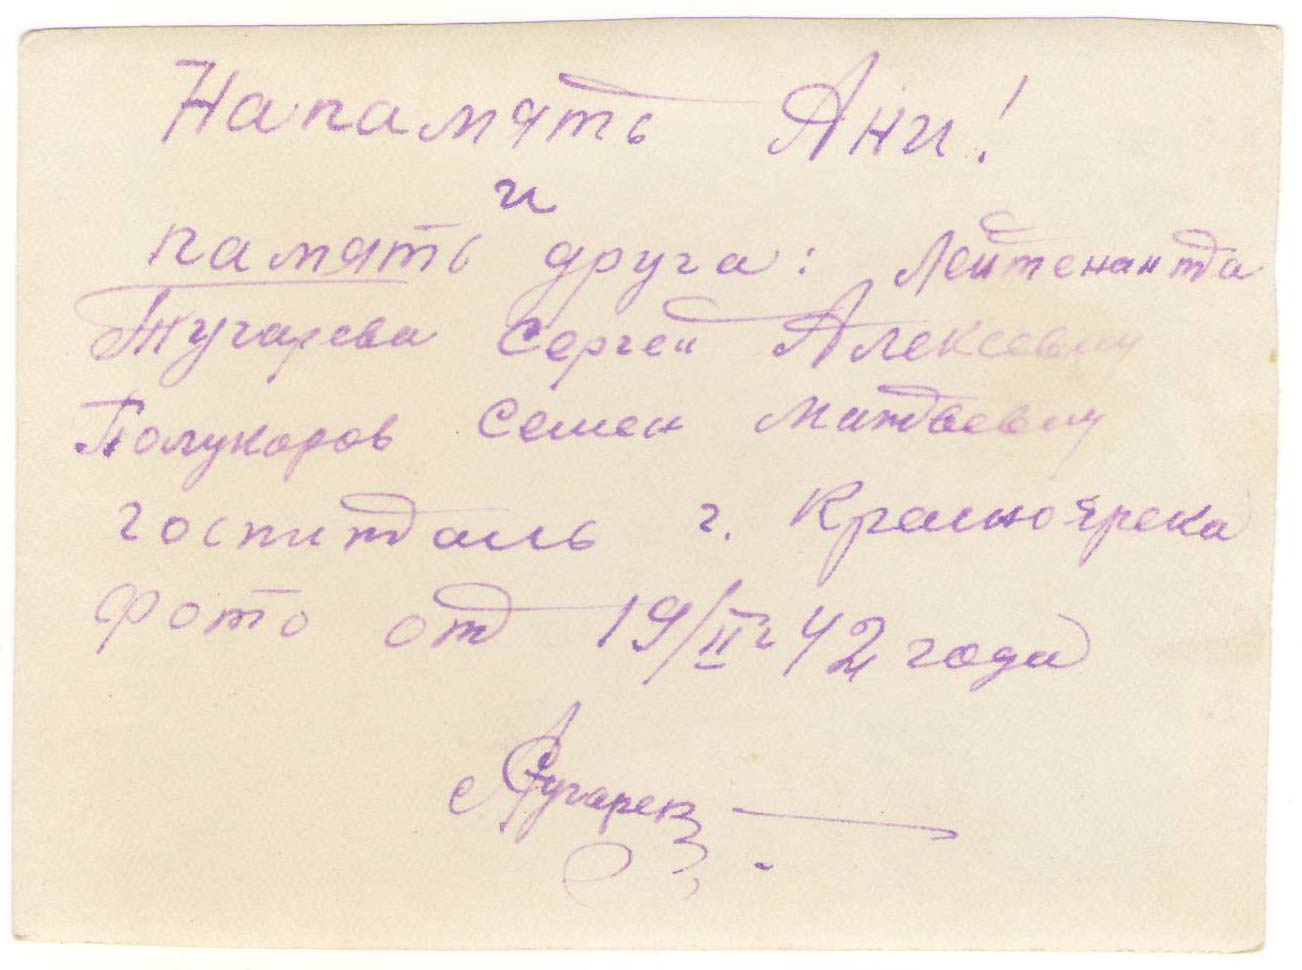 На память Ани!
и
память друга: Лейтенанта
Тугарева Сергей Алексеевичу
Полукаров Семен Матвеевичу
госпиталь г. Красноярска
фото от 19/II 42 года
Тугарев